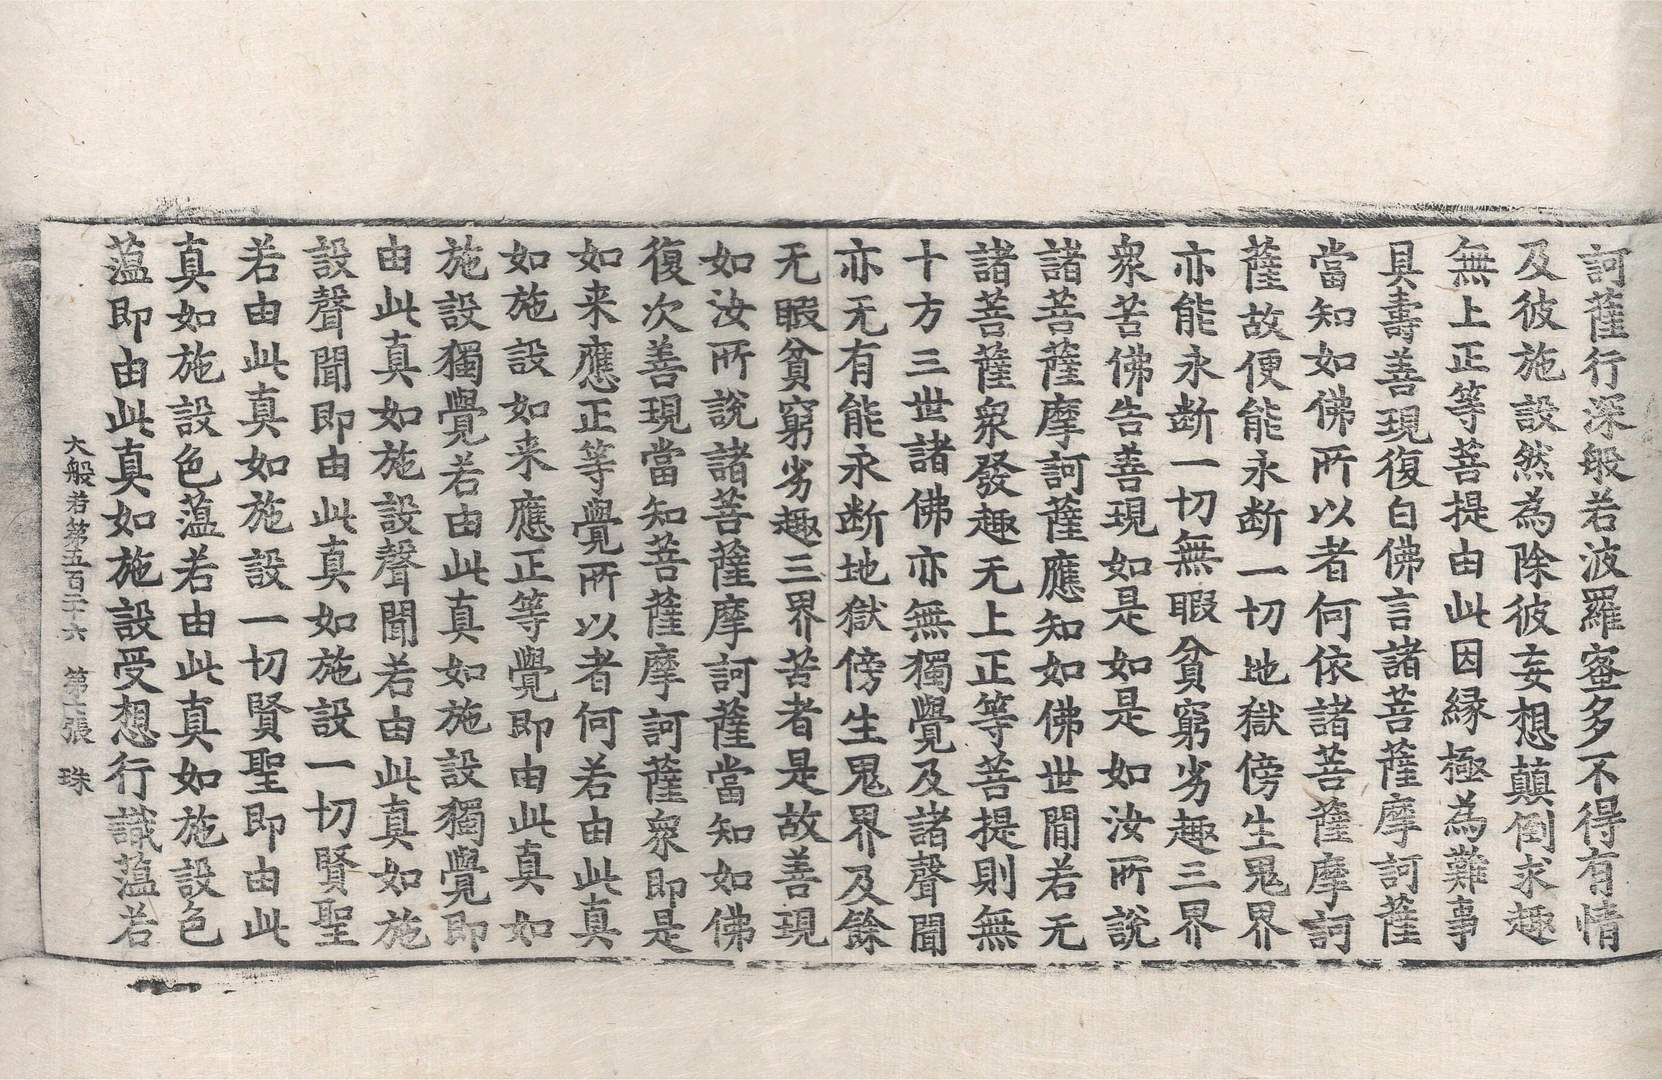 訶薩行深般若波羅蜜多不得有情
及彼施設然為除彼妄想顛倒求趣
無上正等菩提由此因縁極為難事
具壽善現復白佛言諸菩薩摩訶薩
當知如佛所以者何依諸菩薩摩訶
薩故便能永断一切地獄傍生鬼界
亦能永断一切無暇貧窮劣趣三界
衆苦佛告善現如是如是如汝所説
諸菩薩摩訶薩應知如佛世間若无
諸菩薩衆發趣无上正等菩提則無
十方三世諸佛亦無獨覺及諸聲聞
亦无有能永断地獄傍生鬼界及餘
无暇貧窮劣趣三界苦者是故善現
如汝所說諸菩薩摩訶薩當知如佛
復次善現當知菩薩摩訶薩衆即是
如来應正等覺所以者何若由此真
如施設如来應正等覺即由此真如
施設獨覺若由此真如施設獨覺即
由此真如施設聲聞若由此真如施
設聲聞即由此真如施設一切賢聖
若由此真如施設一切賢聖即由此
真如施設色蕰若由此真如施設色
蕰即由此真如施設受想行識蕰若
大般若第五百二十六 第七張 珠